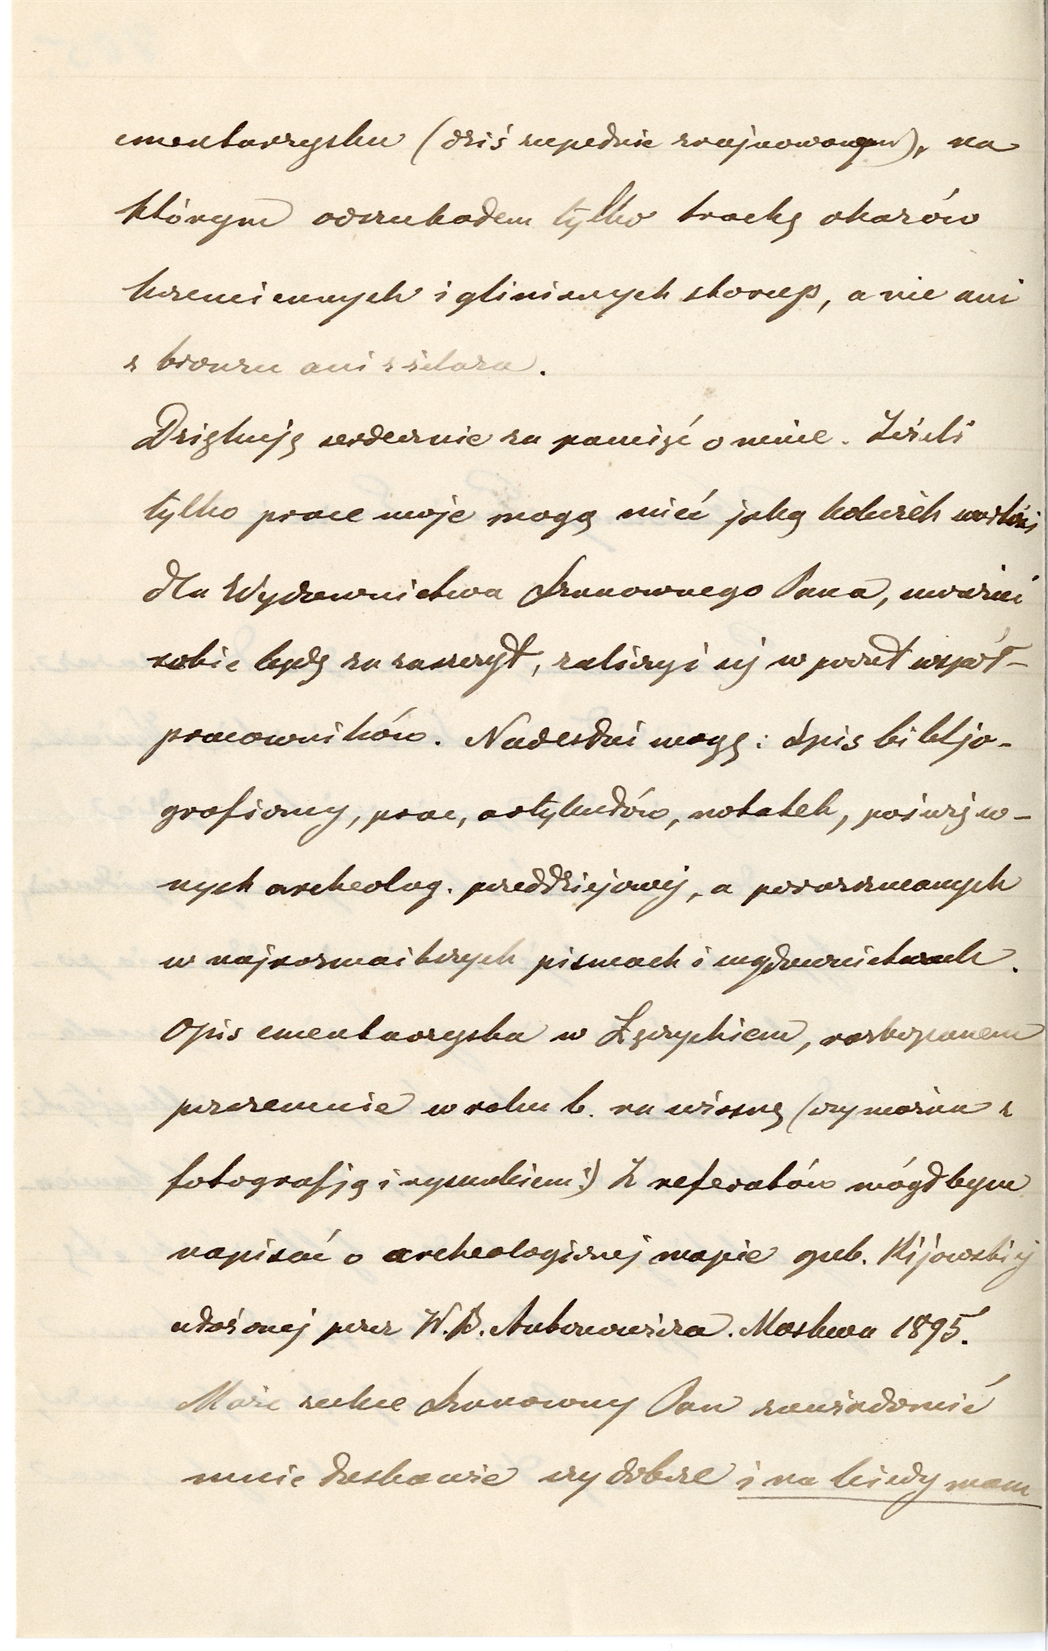 cmentarzysku (dziś zupełnie zrujnowanym), na
którym odszukałem tylko trochę okazów
krzemiennych i glinianych skorup, a nie ani
z bronzu ani z żelaza.
Dziękuję serdecznie za pamięć o mnie. Jeżeli
tylko prace moje mogą mieć jaką kolwiek wartość
dla Wydawnictwa Szanownego Pana, uważać
sobie będę za zaszczyt, zaliczyć się w poczet współ-
pracowników. Nadesłać mogę: spis bibljo-
graficzny, prac, artykułów, notatek, poświęco-
nych archeolog. przeddziejowej, a porozrzucanych
w najrozmaitszych pismach i wydawnictwach.
Opis cmentarzyska w Łęczyckiem, rozkopanem
przezemnie w roku b. na wiosnę (czy można z
fotografją i rysunkiem?) Z referatów mógłbym
napisać o archeologicznej mapie gub. Kijowskiej
ułożonej przez W. B. Antonowicza. Moskwa 1895.
Może zechce Szanowny Pan zawiadomić
mnie łaskawie czy dobrze i na kiedy mam